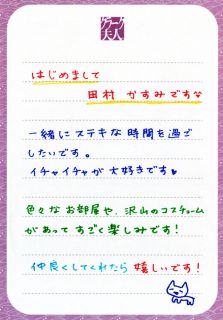 はじめまして
田村 かすみですな
一緒にステキな時間を過ご
したいです。
イチャイチャが大好きです♥
色々なお部屋や、沢山のコスチューム
があってすごく楽しみです!
仲良くしてくれたら嬉しいです!